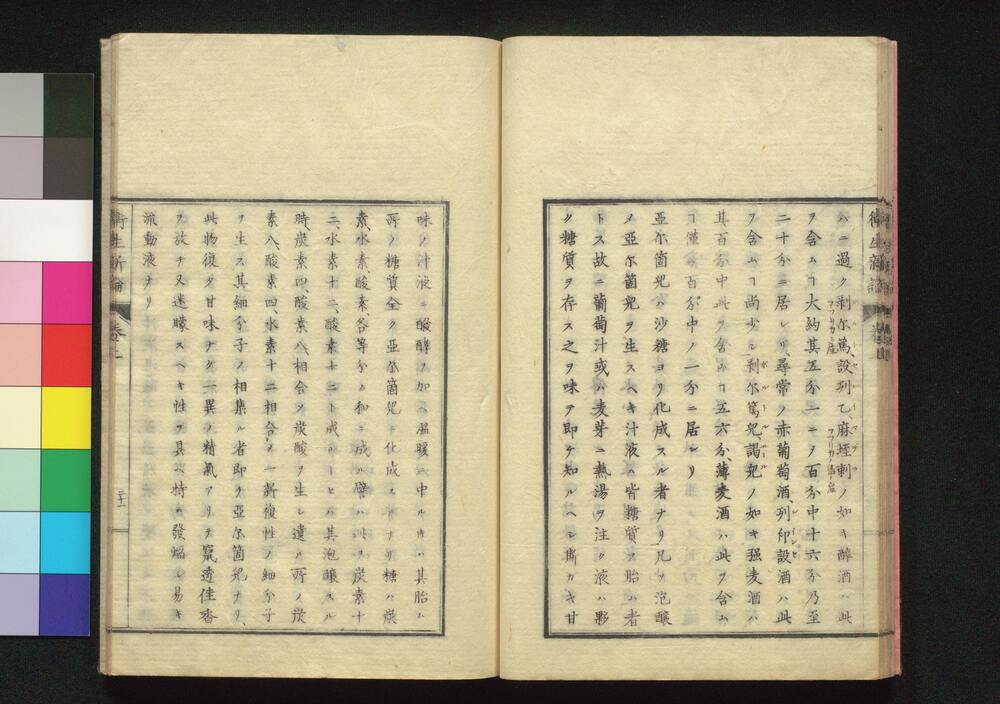 衛生新論
ハニ過ク剥尓蔦、設列乙、麻垤剌ノ如キ醇酒ハ此
ヲ含ムヿ大約其五分一ニ〆百分中十六分乃至
二十分ニ居レリ、尋常ノ赤葡萄酒、列印設酒ハ此
ヲ含ムヿ尚少シ剥尓篤児、謁児ノ如キ强麦酒ハ
其百分中此ヲ含ムヿ五六分、薄麦酒ハ此ヲ含ム
ヿ僅ニ百分中ノ二分ニ居レリ
亜尓箇児ハ沙糖ヨリ化成スル者ナリ凡ソ泡醸
〆亜尓箇児ヲ生スヘキ汁液ハ皆糖質ヲ胎ム者
トス故ニ葡萄汁或ハ麦芽ニ熱湯ヲ注ク液ハ夥
ク糖質ヲ存ス之ヲ味ヲ即チ知ルヘシ斯カキ甘
味ノ汁液ニ酸酵ヲ加ヘ温暖ニ中ルキハ其胎ム
所ノ糖質全ク亜尓箇児ト化成スルナリ糖ハ炭
素、水素、酸素、各等分ノ和ニ成ル譬ハ此ヲ炭素十
二、水素十二、酸素十二ト成ルートヒハ其泡醸スル
時、炭素四、酸素八、相合シ炭酸ヲ生シ遺ル所ノ炭
素八、酸素四、水素十二相合〆一新複性ノ細分子
ヲ生ス其細分子ノ相集ル者即チ亜尓箇児ナリ、
此物復タ甘味ナク一異ノ精氣アリテ竄透佳香
ヲ放チ又迷朦スヘキ性ヲ具ヘ特ニ發熖シ易キ
流動液ナリ
衛生新論 巻之
三十一